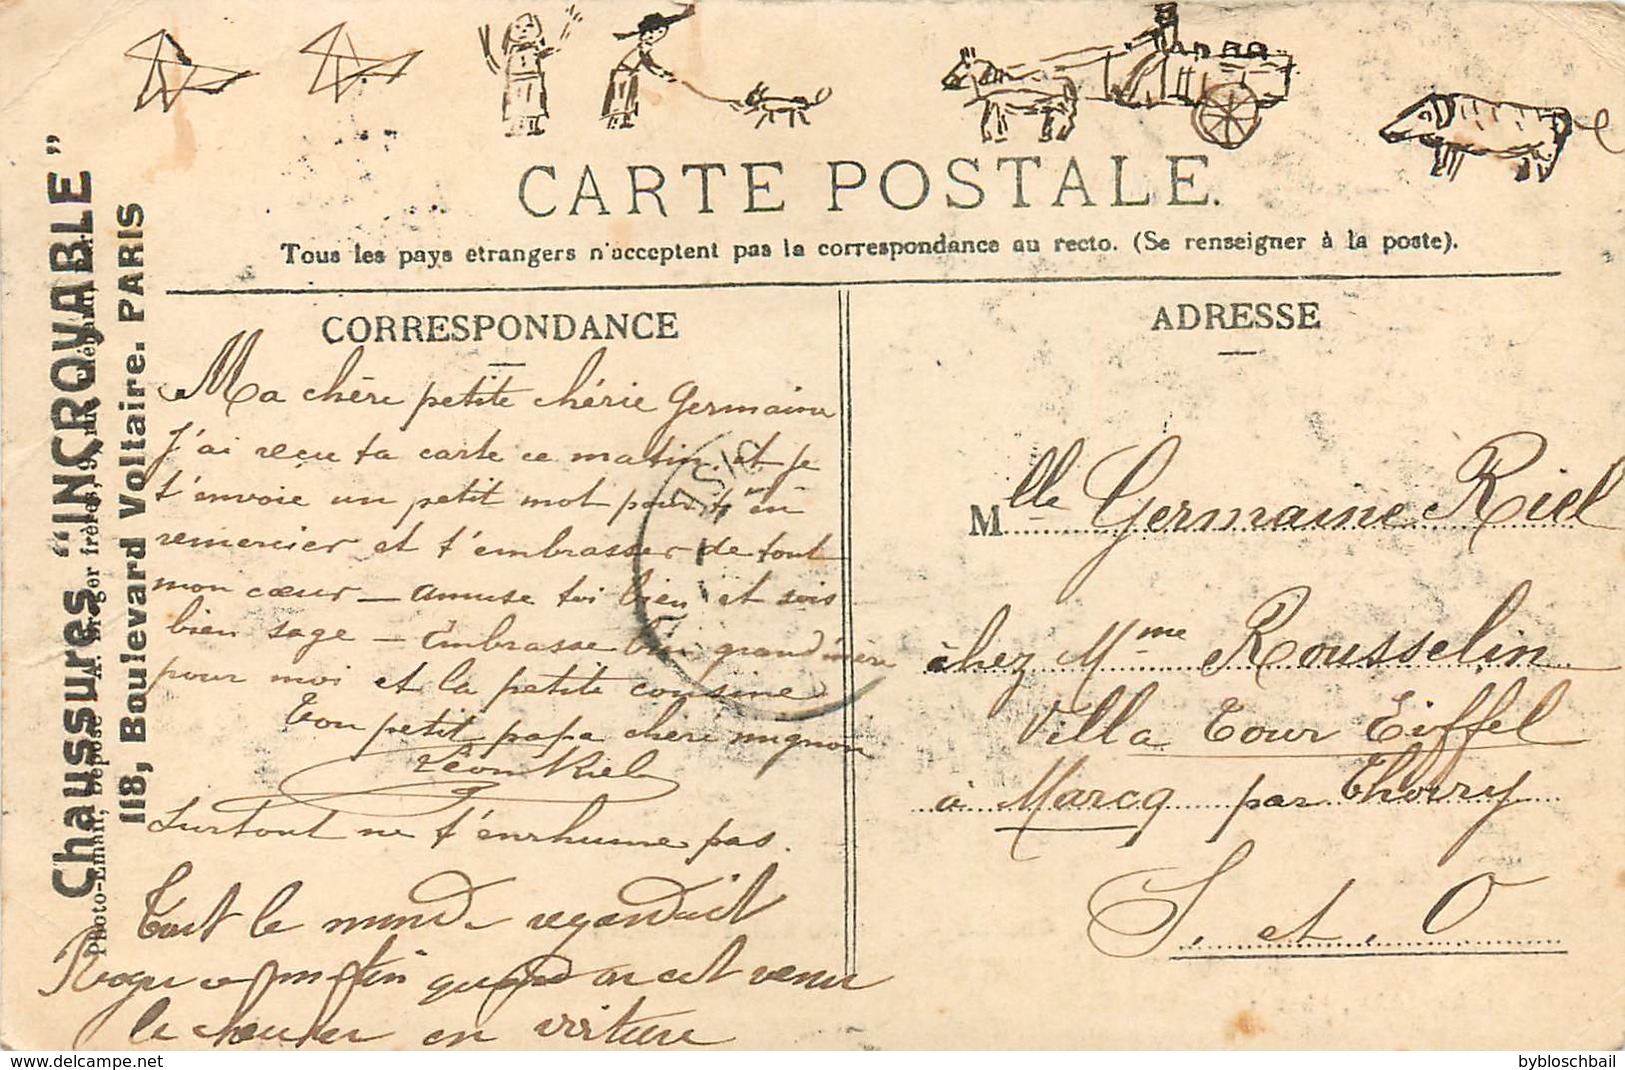 CARTE POSTALE.
Tous les pays etrangers n'acceptent pas la correspondance au recto. (Se renseigner à la poste).
Chaussures "INCROYABLE"
118, Boulevard Voltaire. PARIS
Photo-Email, Déposé A. Breger frères, 9,
CORRESPONDANCE
Ma chère petite chérie Germaine
J'ai reçu ta carte ce matin et je
t'envoie un petit mot pour t'en
remercier et t'embrasser de tout
mon cœur — amuse toi bien et sois
bien sage — Embrasse bien grand'mère
pour moi et la petite cousine
Ton petit papa chéri mignon
Léon Riel
Surtout ne t'enrhume pas.
Tout le monde regardait
quand on est venu
le chercher en voiture
ADRESSE
Mlle Germaine Riel
chez Mme Rousselin
Villa Tour Eiffel
à Marcq par Thoiry
S. et. O
www.delcampe.net
bybloschbail